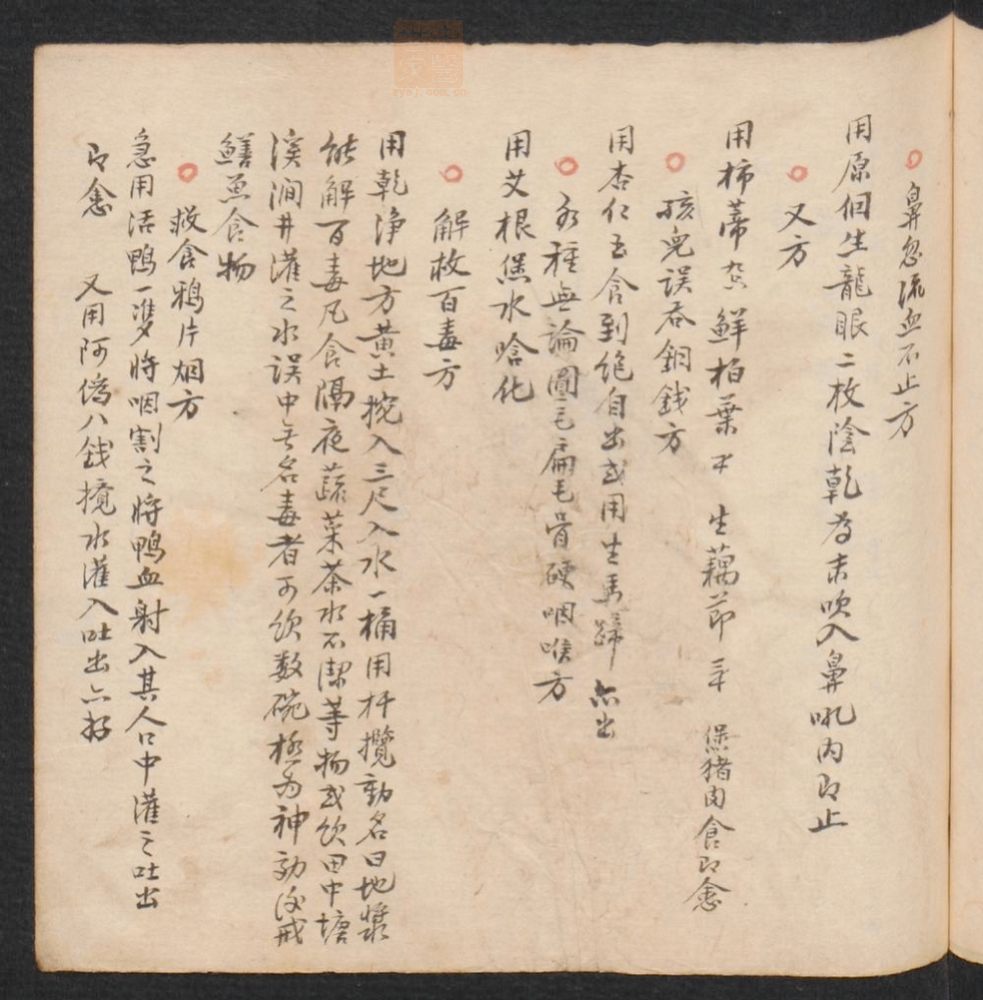 鼻忽流血不止方
用原個生龍眼二枚陰乾為末吹入鼻吼内即止
又方
用柿蒂 鮮柏葉 生藕节 煲猪肉食即愈
孩兒误吞銅錢方
用杏仁 含到绝自出或用生馬蹄亦出
各種無論圓毛扁毛骨硬咽喉方
用艾根煲水唅化
解救百毒方
用乾净地方黄土挖入三尺入水一桶用杆攪動名曰地漿
能解百毒凡食隔夜蔬菜茶水不潔等物或飲田中塘
溪澗井灌之水误中无名毒者可飲数碗極为神効後戒
鱔魚食物
救食鴉片烟方
急用活鴨一隻将咽割之将鴨血射入其人口中灌之吐出
即愈 又用阿
八錢攪水灌入吐出亦好